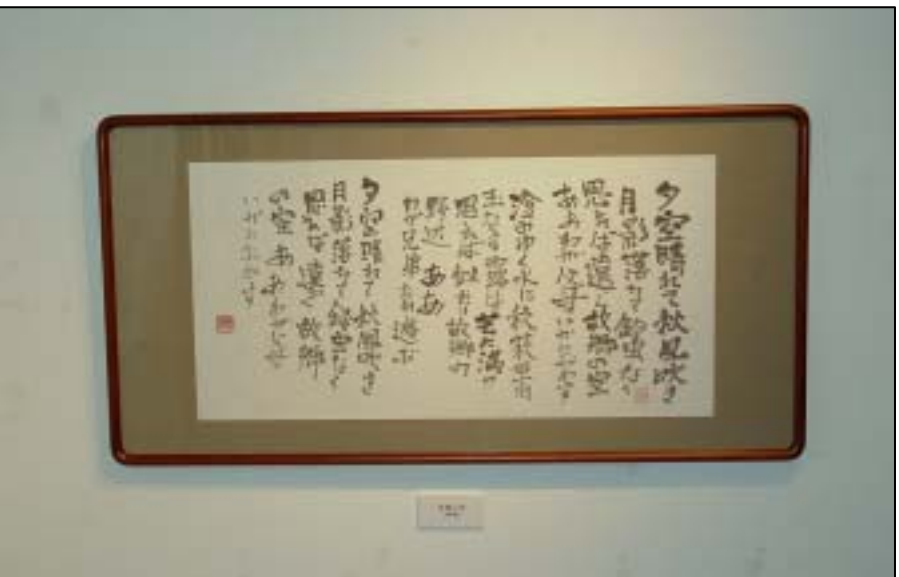 夕空晴れて秋風吹き
月影落ちて鈴虫なく
思えば遠し故郷の空
ああわが父母いかにおわす
澄みゆく水に秋萩
玉なす露は芒に満つ
思えば似たり故郷の
野辺 ああ
わが兄弟たれと遊ぶ
夕空晴れて秋風吹き
月影落ちて鈴虫なく
思えば遠し故郷
の空 ああわが父母
いかにおわす